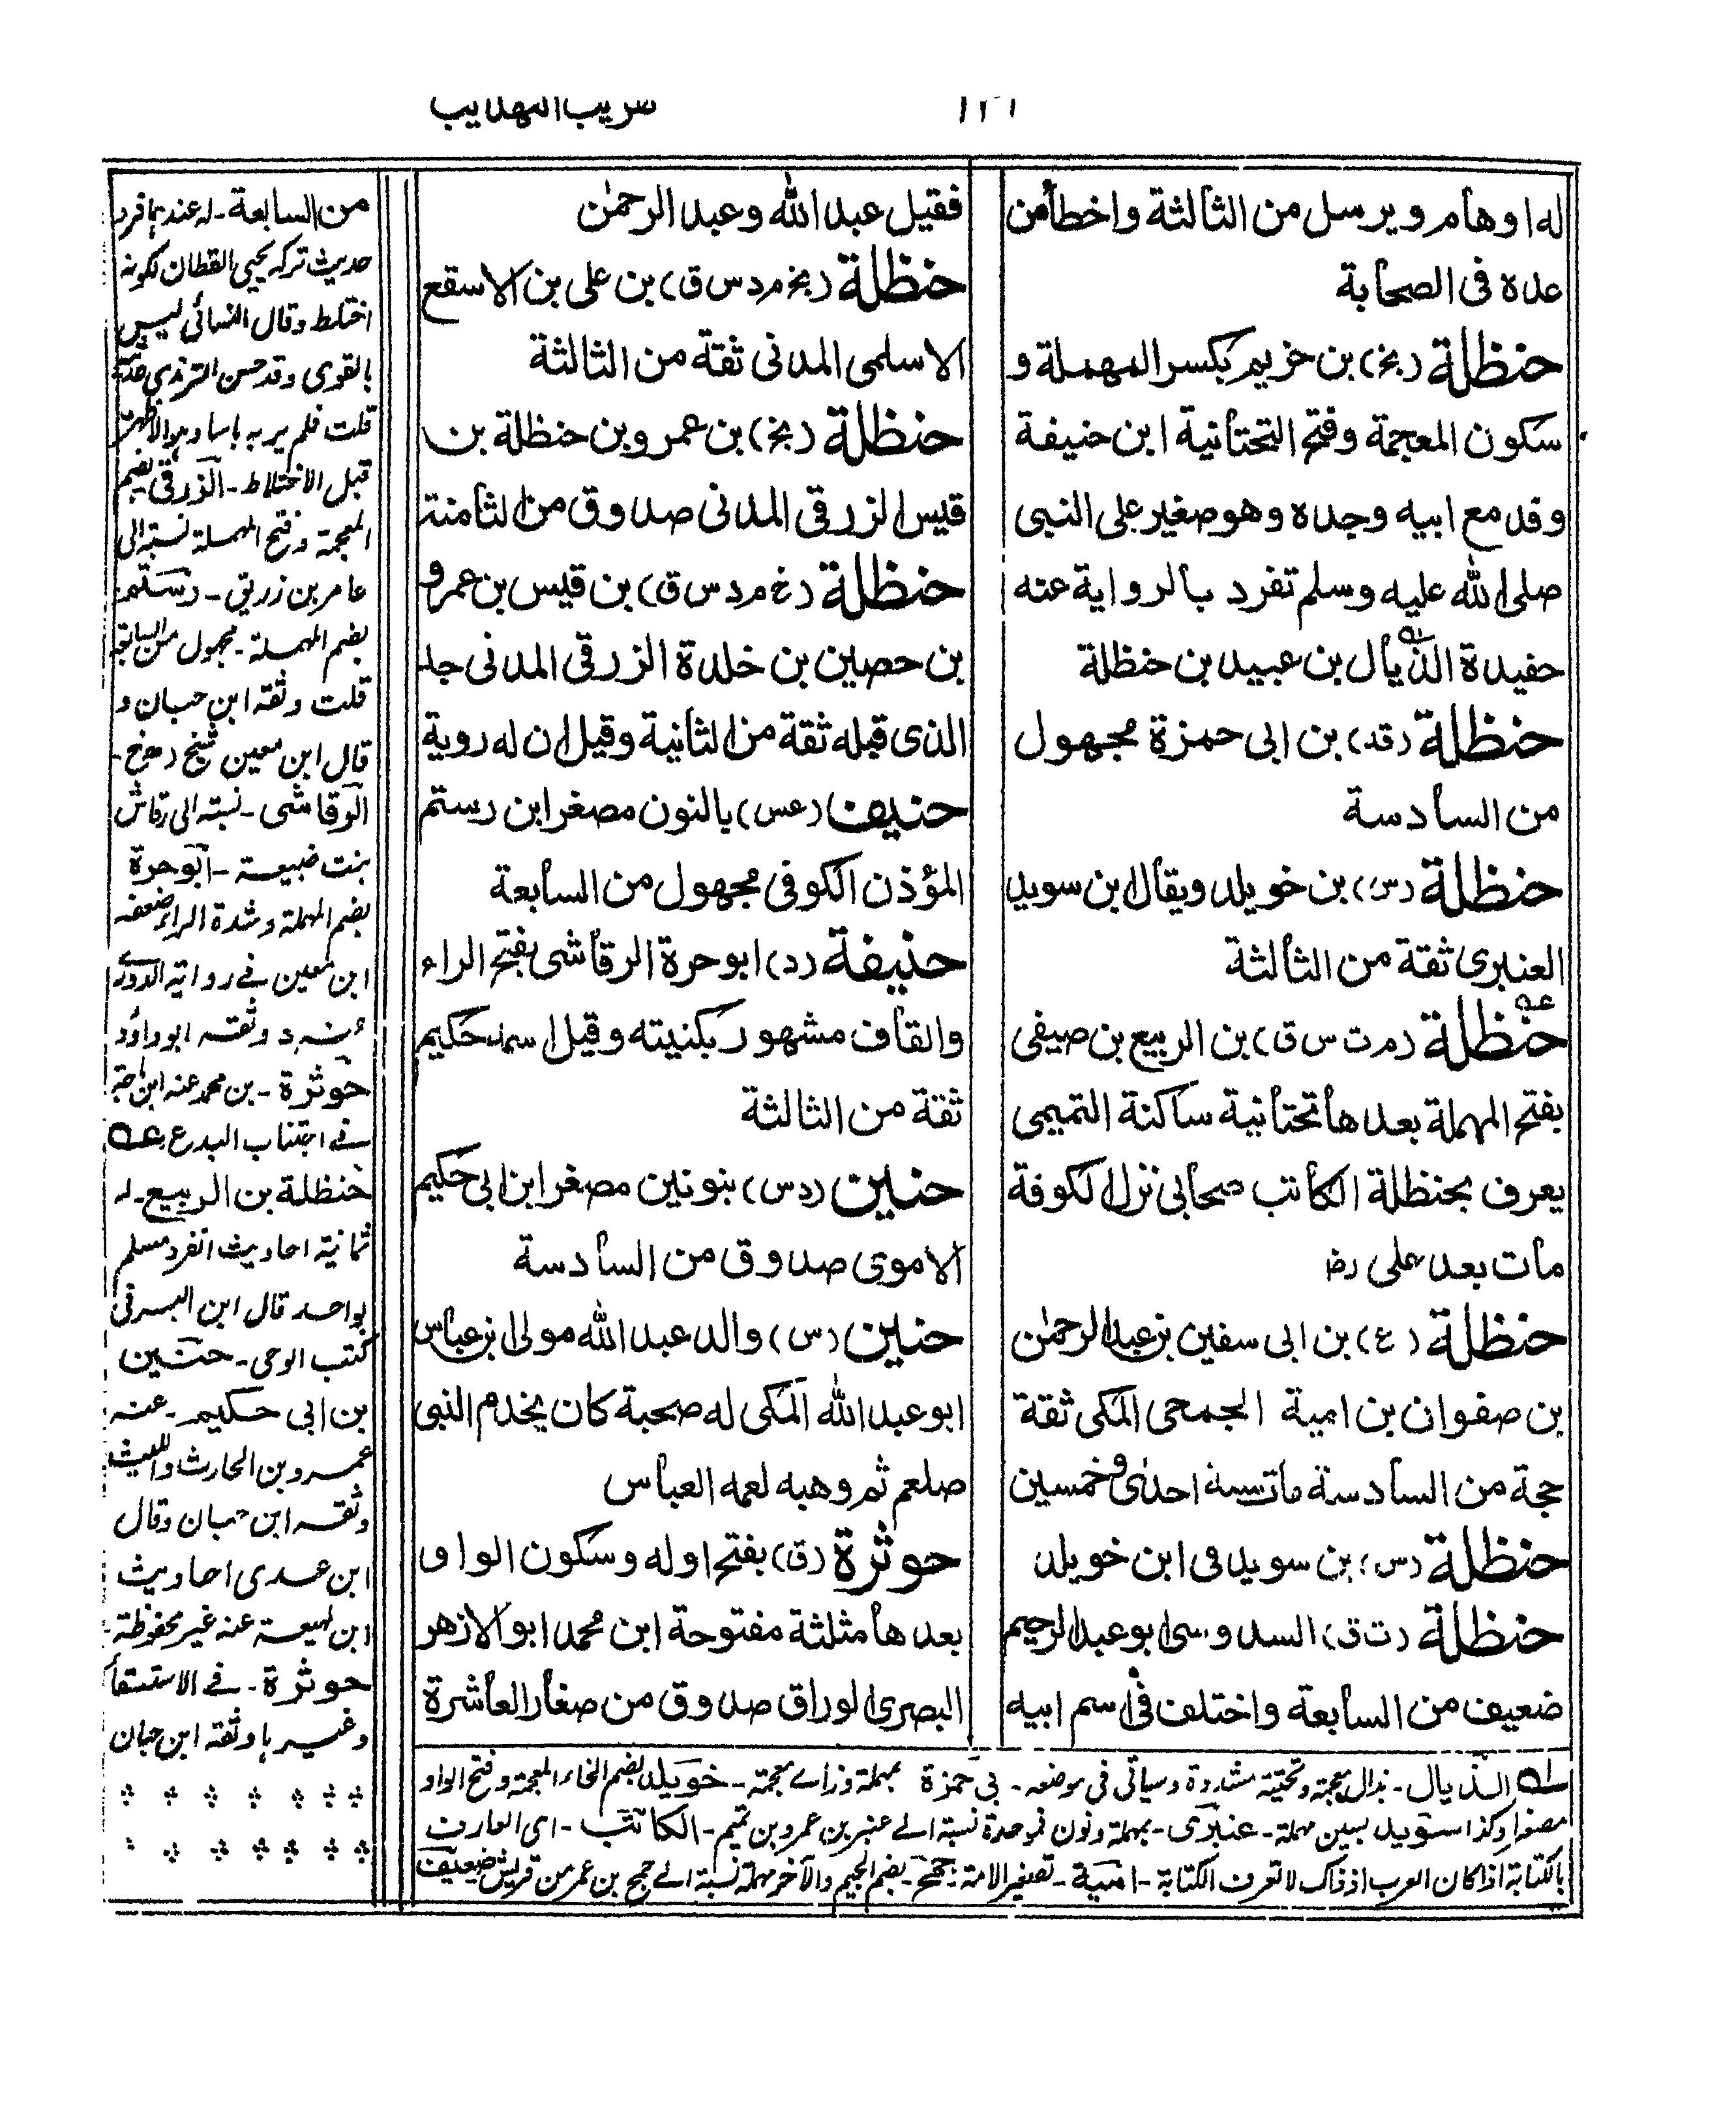 تقريب التهذيب
له اوهام ويرسل من الثالثة واخطأ من
عده فى الصحابة
حنظلة (بخ) بن حزيم بكسر المهملة و
سكون المعجمة وفتح التحتانية ابن حنيفة
وفد مع ابيه وجده وهو صغير على النبى
صلى الله عليه وسلم تفرد بالرواية عنه
حفيده الذيال بن عبيد بن حنظلة
حنظلة (قد) بن ابى حمزة مجهول
من السادسة
حنظلة (س) بن خويلد ويقال ابن سويد
العنبرى ثقة من الثالثة
حنظلة (م ت س ق) بن الربيع بن صيفى
بفتح المهملة بعدها تحتانية ساكنة التميمى
يعرف بحنظلة الكاتب صحابى نزل الكوفة
مات بعد على رض
حنظلة (ع) بن ابى سفين بن عبد الرحمٰن
بن صفوان بن امية الجمحى المكى ثقة
حجة من السادسة مات سنة احدى وخمسين
حنظلة (س) بن سويد فى ابن خويلد
حنظلة (ت ق) السدوسى ابو عبد الرحيم
ضعيف من السابعة واختلف فى اسم ابيه
فقيل عبد الله وعبد الرحمٰن
حنظلة (بخ م د س ق) بن على بن الاسقع
الاسلمى المدنى ثقة من الثالثة
حنظلة (بخ) بن عمرو بن حنظلة بن
قيس الزرقى المدنى صدوق من الثامنة
حنظلة (خ م د س ق) بن قيس بن عمرو
بن حصين بن خلدة الزرقى المدنى جد
الذى قبله ثقة من الثانية وقيل ان له روية
حنيف (عس) بالنون مصغر ابن رستم
المؤذن الكوفى مجهول من السابعة
حنيفة (د) ابو حرة الرقاشى بفتح الراء
والقاف مشهور بكنيته وقيل اسمه حكيم
ثقة من الثالثة
حنين (د س) بنونين مصغر ابن ابى حكيم
الاموى صدوق من السادسة
حنين (س) والد عبد الله مولى ابن عباس
ابو عبد الله المكى له صحبة كان يخدم النبى
صلعم ثم وهبه لعمه العباس
حوثرة (ق) بفتح اوله وسكون الواو
بعدها مثلثة مفتوحة ابن محمد ابو الازهر
البصرى الوراق صدوق من صغار العاشرة
من السابعة - له عندهما فرد
حديث تركه يحيى القطان لكونه
اختلط وقال النسائى ليس
بالقوى وقد حسن الترمذى حديثه
قلت فلم ير به باسا وهو الاظهر
قبل الاختلاط - الزرقى بضم
المعجمة وفتح المهملة نسبة الى
عامر بن زريق - رستم
بضم المهملة - مجهول من السابعة
قلت وثقه ابن حبان و
قال ابن معين شيخ
الرقاشى - نسبة الى رقاش
بنت ضبيعة - ابو حرة
بضم المهملة وشدة الراء ضعفه
ابن معين فى رواية الدورى
عنه د وثقه ابو داؤد
حوثرة - بن محمد عنه ابن ماجة
فى اجتناب البدع
حنظلة بن الربيع - له
ثمانية احاديث انفرد مسلم
بواحد قال ابن البرقى
كتب الوحى - حنين
بن ابى حكيم - عنه
عمرو بن الحارث والليث
وثقه ابن حبان وقال
ابن عدى احاديث
ابن لهيعة عنه غير محفوظة -
حوثرة - فى الاستسقاء
وغيرها وثقه ابن حبان
الذيال - بذال معجمة وتحتية مشددة وسياتى فى موضعه - بى حمزة بمهملة وزاے معجمة - خويلد بضم الخاء المعجمة وفتح الواو
مصغرا وكذا سويد بسين مهملة - عنبرى - بمهملة ونون فموحدة نسبة الے عنبر بن عمرو بن تميم - الكاتب - اى العارف
بالكتابة اذ كان العرب اذ ذاك لا تعرف الكتابة - امية - تصغير الامة - جمح - بضم الجيم والآخر مهملة نسبة الے جمح بن عمر من قريش ضعيف